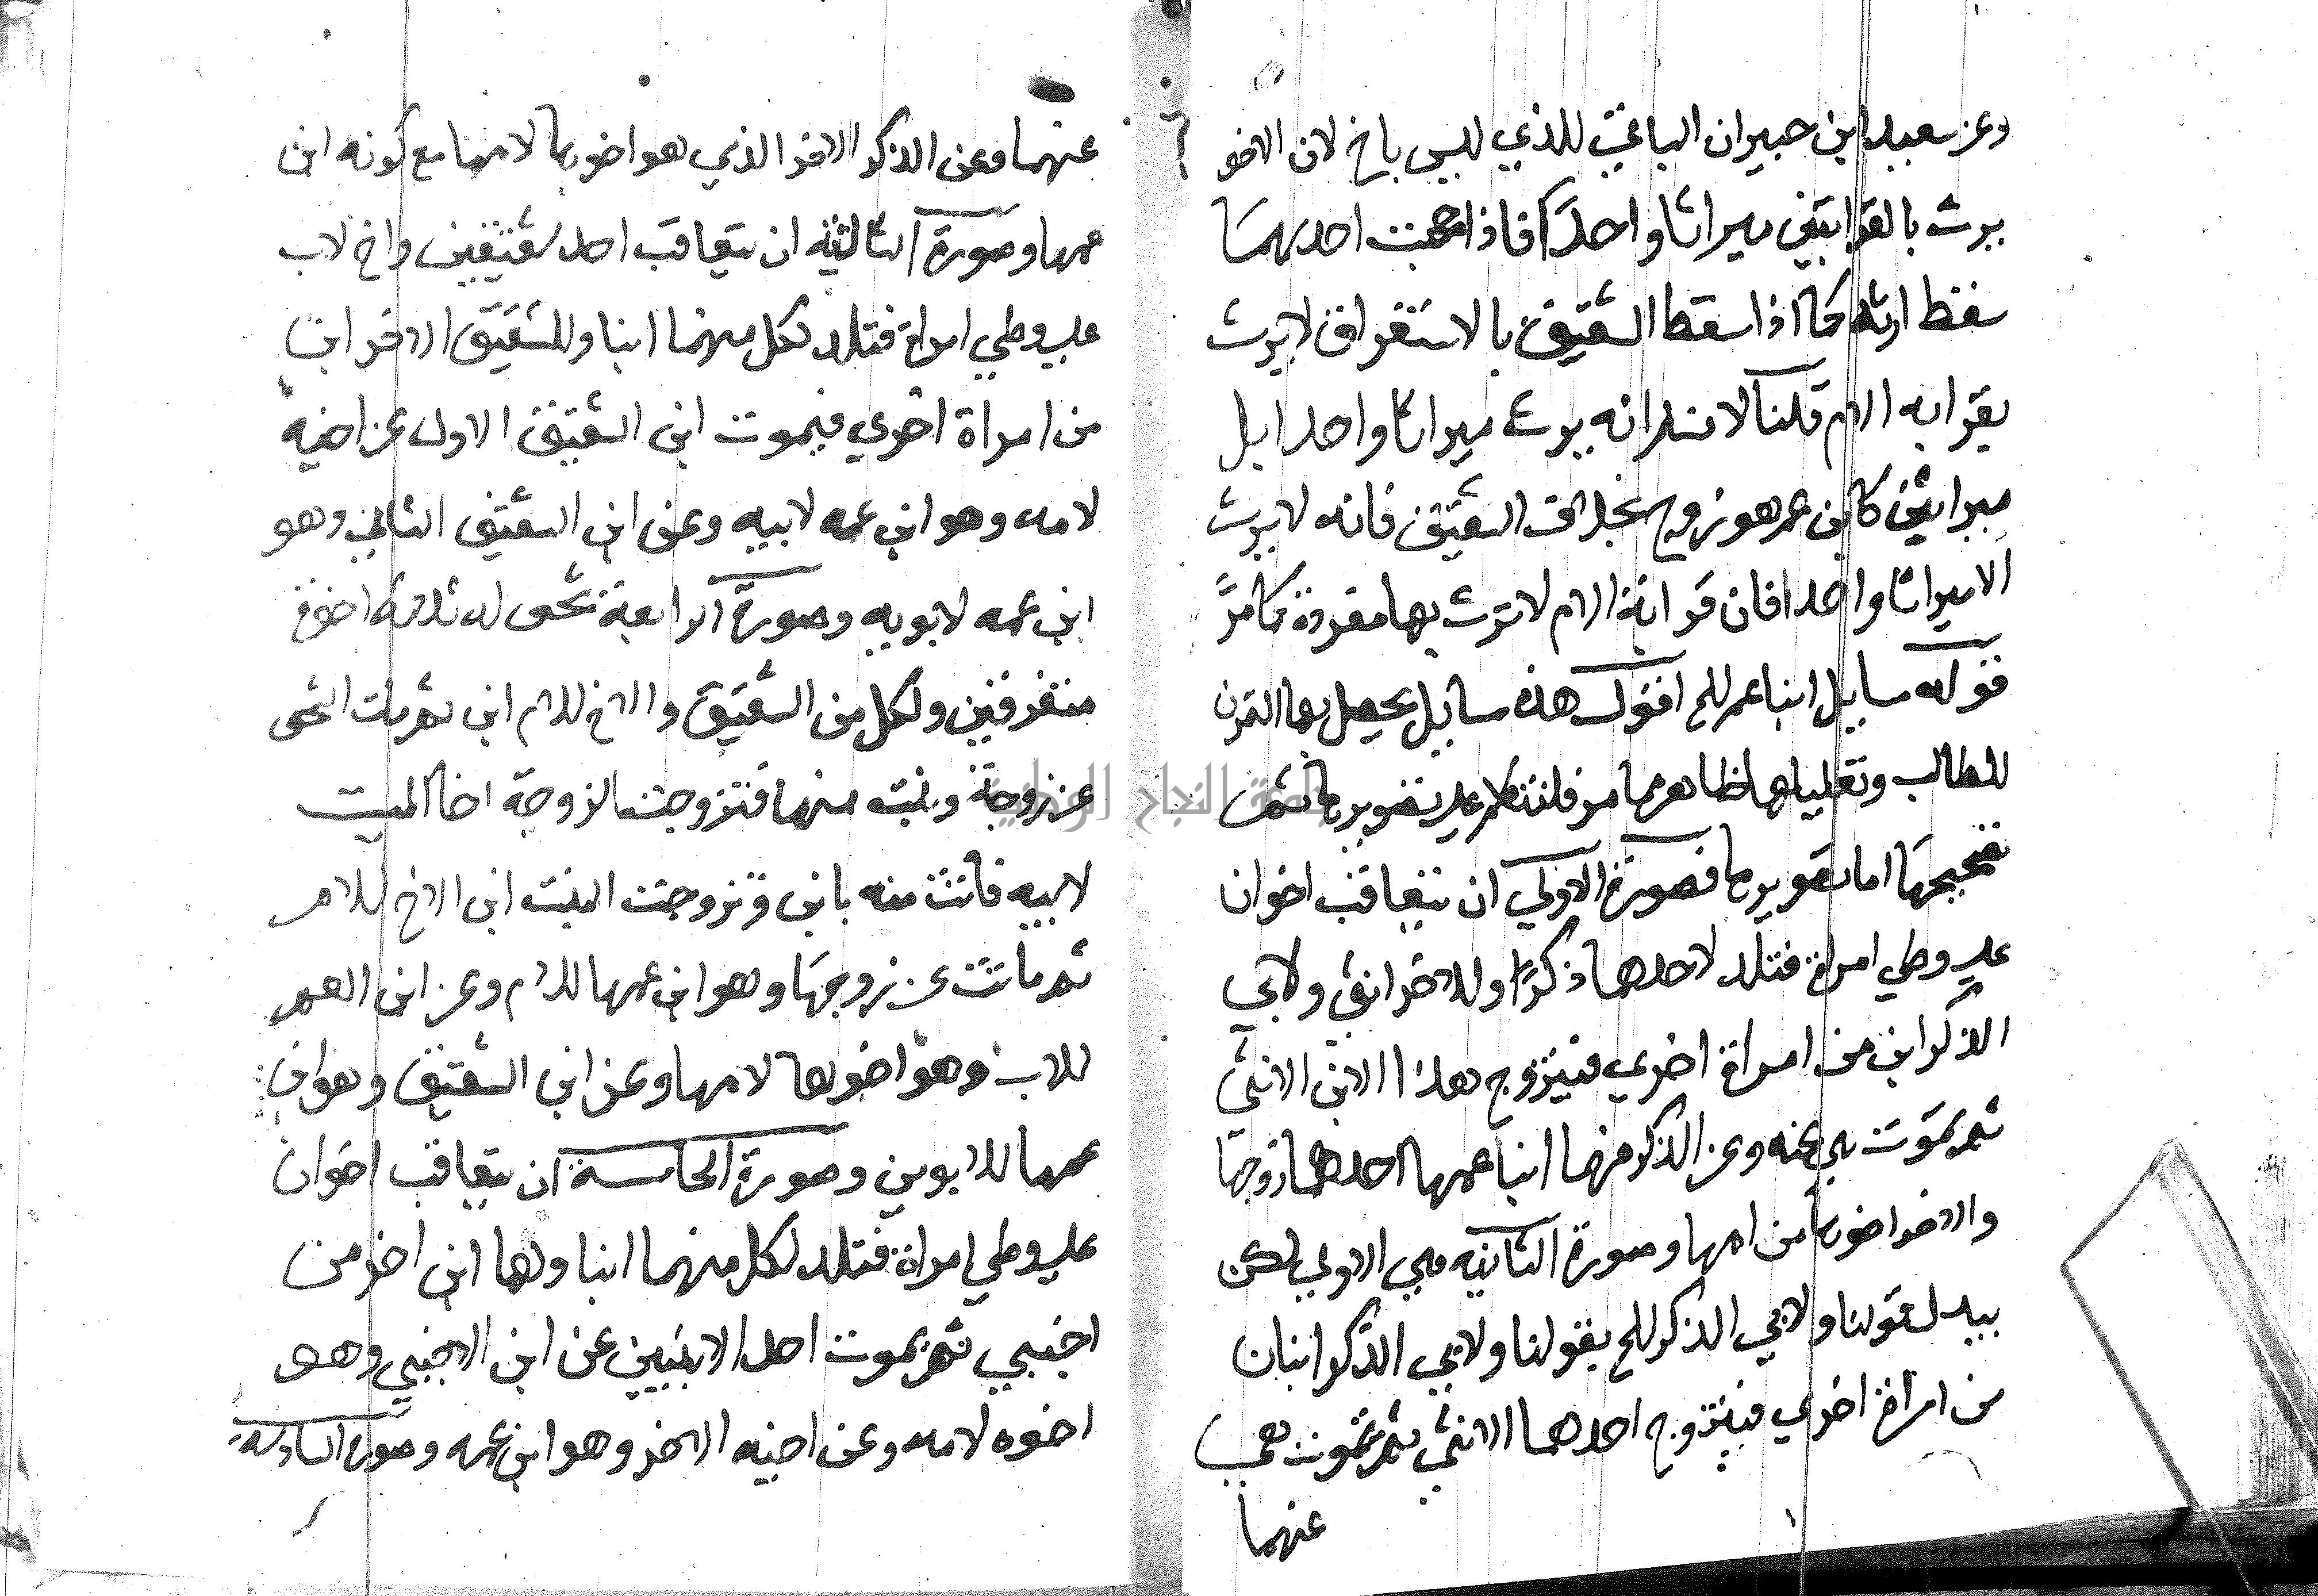 وعن سعيد ابن جبير ان الباقي للذي ليس باخ لان الاخو
يرث بالقرابتين ميراثا واحدا فاذا حجبت احديهما
سقط ارثه كما اذا سقط الشقيق بالاستغراق لا يرث
بقرابه الام قلنا لا نسلم انه يرث ميراثا واحدا بل
ميراثين كابن عم هو زوج بخلاف الشقيق فانه لا يرث
الا ميراثا واحدا فان قرابة الام لا يرث بها مفردة كما مر
قوله مسايل ابنا عم الخ اقول هذه مسايل يحصل بها التمرن
للطالب وتعليلها ظاهر مما مر فلنتكلم علي تصويرها ثم
تصحيحها اما تصويرها فصورة الاولي ان يتعاقب اخوان
علي وطي امراة فتلد لاحدهما ذكرا وللاخر انثي ولابي
الذكر ابن من امراة اخري فيتزوج هذا الابن الانثي
ثم تموت هي عنه وعن الذكر منهما ابنا عمها احدهما زوجها
والاخر اخوها من امها وصورة الثانيه هي الاولي لكن
يبدل قولنا ولابي الذكر الخ بقولنا ولابي الذكر ابنان
من امراة اخري فيتزوج احدهما الانثي ثم تموت هي
عنهما
عنهما وعن الذكر الاخر الذي هو اخوها لامها مع كونه ابن
عمها وصورة الثالثة ان يتعاقب احد شقيقين واخ لاب
علي وطي امراة فتلد لكل منهما ابنا وللشقيق الاخر ابن
من امراة اخري فيموت ابن الشقيق الاول عن اخيه
لامه وهو ابن عمه لابيه وعن ابن الشقيق الثاني وهو
ابن عمه لابويه وصورة الرابعة شخص له ثلاثة اخوة
متفرقين ولكل من الشقيق والاخ للام ابن ثم مات الشخص
عن زوجة وبنت منها فتزوجت الزوجة اخا الميت
لابيه فاتت منه بابن وتزوجت البنت ابن الاخ للام
ثم ماتت عن زوجها وهو ابن عمها للام وعن ابن العم
للاب وهو اخوها لامها وعن ابن الشقيق وهو ابن
عمها للابوين وصورة الخامسة ان يتعاقب اخوان
علي وطي امراة فتلد لكل منهما ابنا ولها ابن اخر من
اجنبي ثم يموت احد الابنين عن ابن الاجنبي وهو
اخوه لامه وعن اخيه الاخر وهو ابن عمه وصورة السادسة
جامعة النجاح الوطنية